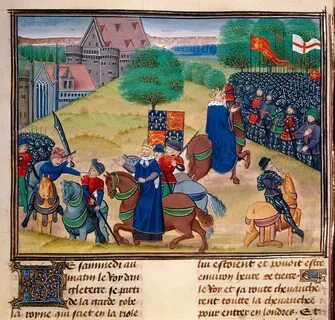 Le samedi au
matin le Roy dan
gleterre se parti
de la garde robe
la royne qui siet en la riole
lui estoient et pouoit estre
environ leure de tierce
Le Roy et sa route cheuauche
rent toutte la cheuauchee
pour entrer en londres. Et